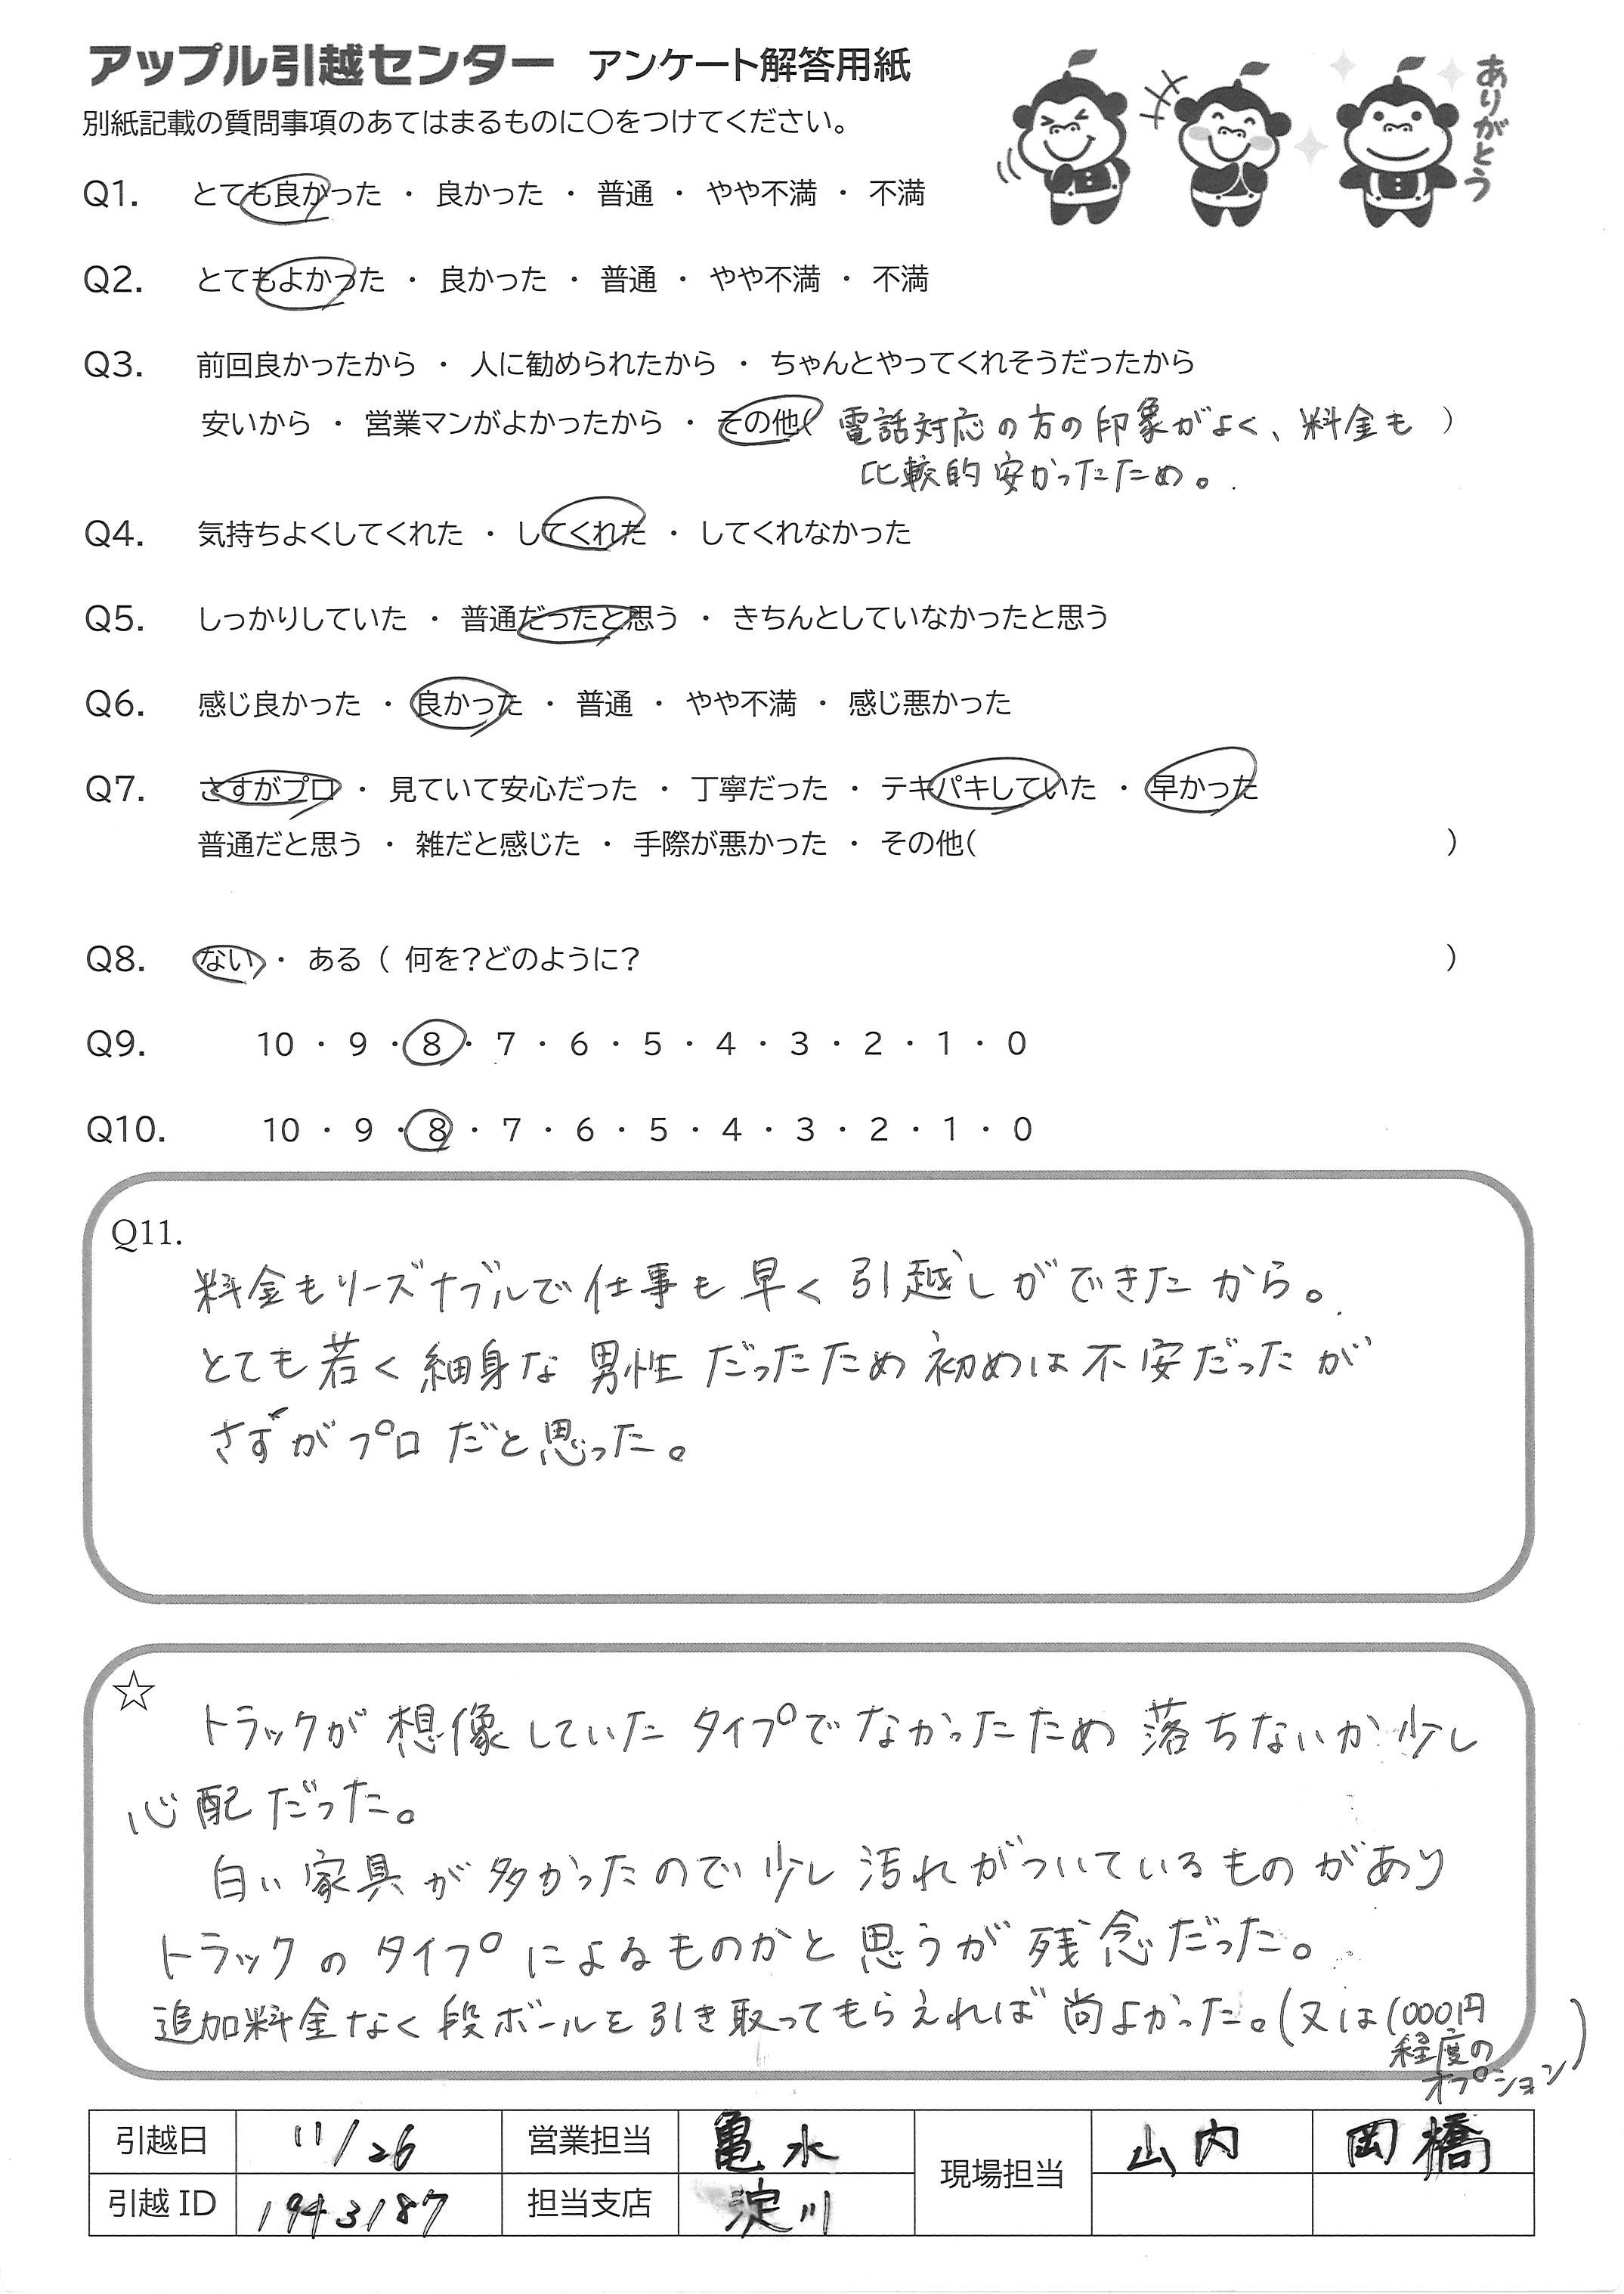 アップル引越センター アンケート解答用紙
ありがとう
別紙記載の質問事項のあてはまるものに○をつけてください。
Q1. とても良かった ・ 良かった ・ 普通 ・ やや不満 ・ 不満
Q2. とてもよかった ・ 良かった ・ 普通 ・ やや不満 ・ 不満
Q3. 前回良かったから ・ 人に勧められたから ・ ちゃんとやってくれそうだったから
安いから ・ 営業マンがよかったから ・ その他( 電話対応の方の印象がよく、料金も )
比較的安かったため。
Q4. 気持ちよくしてくれた ・ してくれた ・ してくれなかった
Q5. しっかりしていた ・ 普通だったと思う ・ きちんとしていなかったと思う
Q6. 感じ良かった ・ 良かった ・ 普通 ・ やや不満 ・ 感じ悪かった
Q7. さすがプロ ・ 見ていて安心だった ・ 丁寧だった ・ テキパキしていた ・ 早かった
普通だと思う ・ 雑だと感じた ・ 手際が悪かった ・ その他( )
Q8. ない ・ ある ( 何を?どのように? )
Q9. 10 ・ 9 ・ 8 ・ 7 ・ 6 ・ 5 ・ 4 ・ 3 ・ 2 ・ 1 ・ 0
Q10. 10 ・ 9 ・ 8 ・ 7 ・ 6 ・ 5 ・ 4 ・ 3 ・ 2 ・ 1 ・ 0
Q11.
料金もリーズナブルで仕事も早く引越しができたから。
とても若く細身な男性だったため初めは不安だったが
さすがプロだと思った。
☆
トラックが想像していたタイプでなかったため落ちないか少し
心配だった。
白い家具が多かったので少し汚れがついているものがあり
トラックのタイプによるものかと思うが残念だった。
追加料金なく段ボールを引き取ってもらえれば尚よかった。(又は1000円
程度の
オプション)
引越日 11/26 営業担当 亀水 現場担当 山内 岡橋
引越ID 1943187 担当支店 淀川